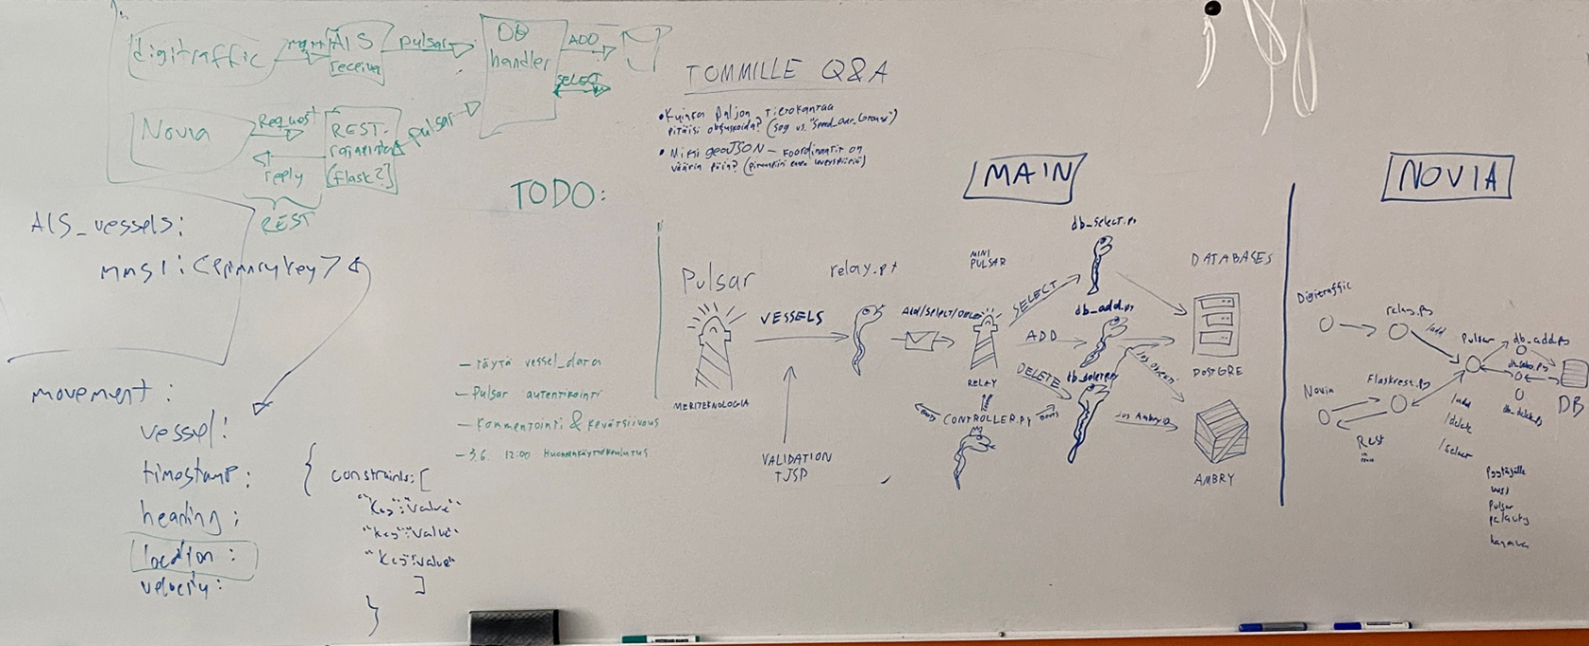 digitraffic
AIS
receiver
pulsar
DB
handler
ADD
SELECT
Novia
Request
reply
REST-
rajapinta
(flask?)
pulsar
REST
AIS_vessels:
mmsi: <primarykey>
movement:
vessel:
timestamp:
heading:
location:
velocity:
{
constraints: [
"key": "value"
"key": "value"
"key": "value"
]
}
TODO:
- täytä vessel_data
- Pulsar autentikointi
- Kommentointi & kevätsiivous
- 3.6. 12:00
TOMMILLE Q&A
• Kuinka paljon tietokantaa
pitäisi obfuskoida? (sog vs. "Speed_over_Ground")
• Miksi geoJSON - koordinaatit on
väärin päin?
MAIN
Pulsar
MERITEKNOLOGIA
VESSELS
VALIDATION
TJSP
relay.py
Add/Select/Delete
MINI
PULSAR
RELAY
CONTROLLER.PY
SELECT
ADD
DELETE
db_select.py
db_add.py
db_delete.py
DATABASES
POSTGRE
AMBRY
NOVIA
Digitraffic
relay.py
/add
Pulsar
db_add.py
DB
Novia
Flaskrest.py
Rest
/add
/delete
/select
Pulsar